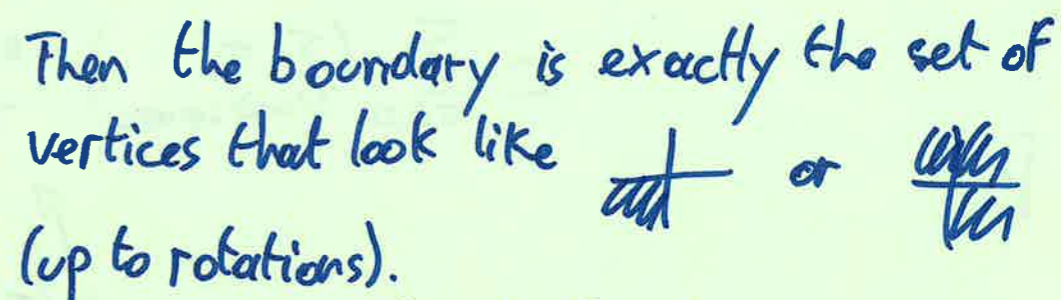 Then the boundary is exactly the set of
vertices that look like or
(up to rotations).